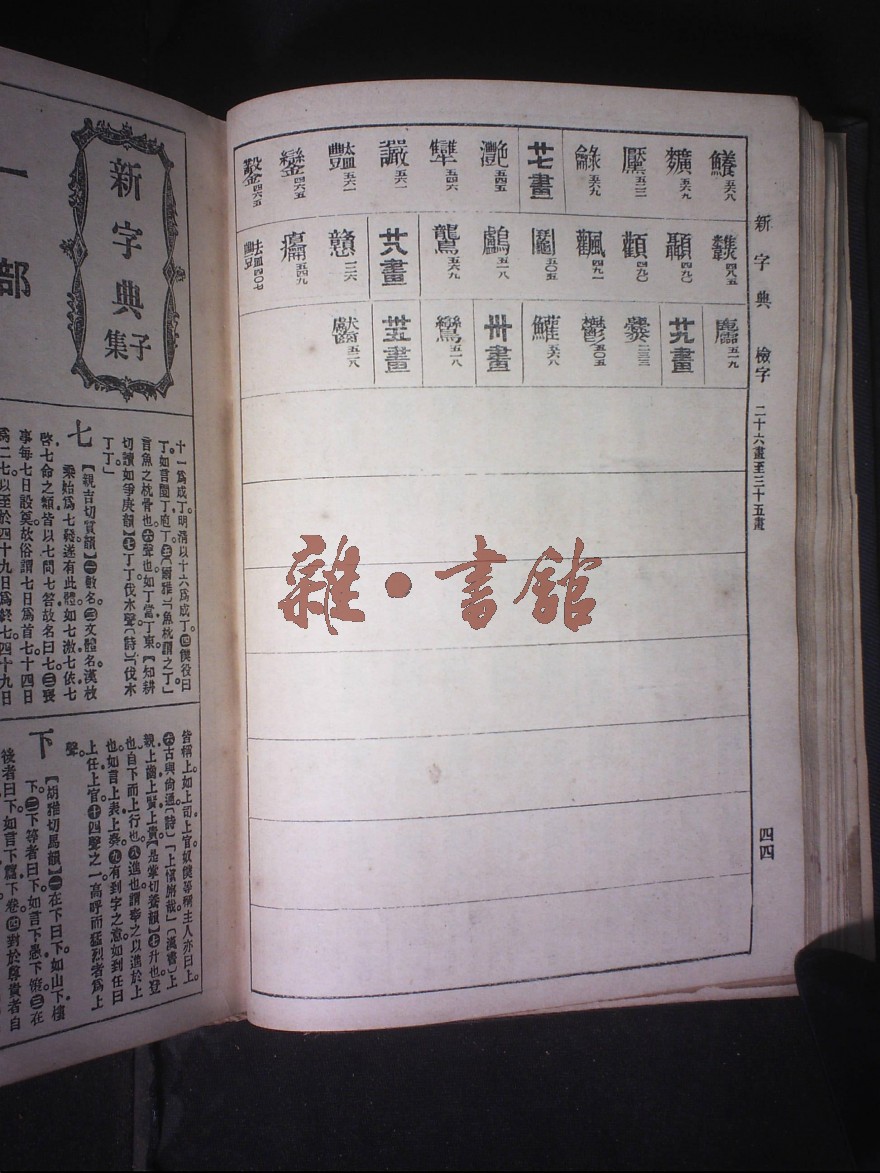 新字典 檢字 二十六畫至三十五畫
四四
鱶 五六八
黂 五六九
靨 五二二
龣 五六九
廿七畫
灔 五四五
讞 五六一
豔 五六一
鑾 四六五
鑿 四六五
顴 四九〇
飌 四九一
鬮 五〇五
鸕 五一八
鸗 五六九
廿八畫
戇 一二六
廿九畫
爨 二三三
鬱 五〇五
鸛 五六八
卅畫
鸞 五一八
卅五畫
齾 五二八
雜·書館
新字典
子集
一部
十一爲成丁明清以十六爲成丁㊃僕役曰
丁如言園丁庖丁㊄【爾雅】「魚枕謂之丁」
言魚之枕骨也㊅聲也如丁當丁東【知耕
切讀如爭庚韻】㊆丁丁伐木聲【詩】「伐木
丁丁」
七
【親吉切質韻】㊀數名㊁文體名漢枚
乘始爲七發遂有此體如七激七依七
啓七命之類皆以七問七答故名曰七㊂喪
事每七日設奠故俗謂七日爲首七十四日
爲二七以至於四十九日爲終七四十九日
皆稱上如上司上官奴僕等稱主人亦曰上
㊅古與尙通【詩】「上愼旃哉」【漢書】上
親上齒上賢上貴【是掌切養韻】㊆升也登
也自下而上行也㊇進也謂奉之以進於上
也如言上表上奏㊈有到字之意如到任曰
上任上官㊉四聲之一高呼而猛烈者爲上
聲
下
【胡雅切馬韻】㊀在下曰下如山下樓
下㊁下等者曰下如言下愚下駟㊂在
後者曰下如言下篇下卷㊃對於尊貴者自